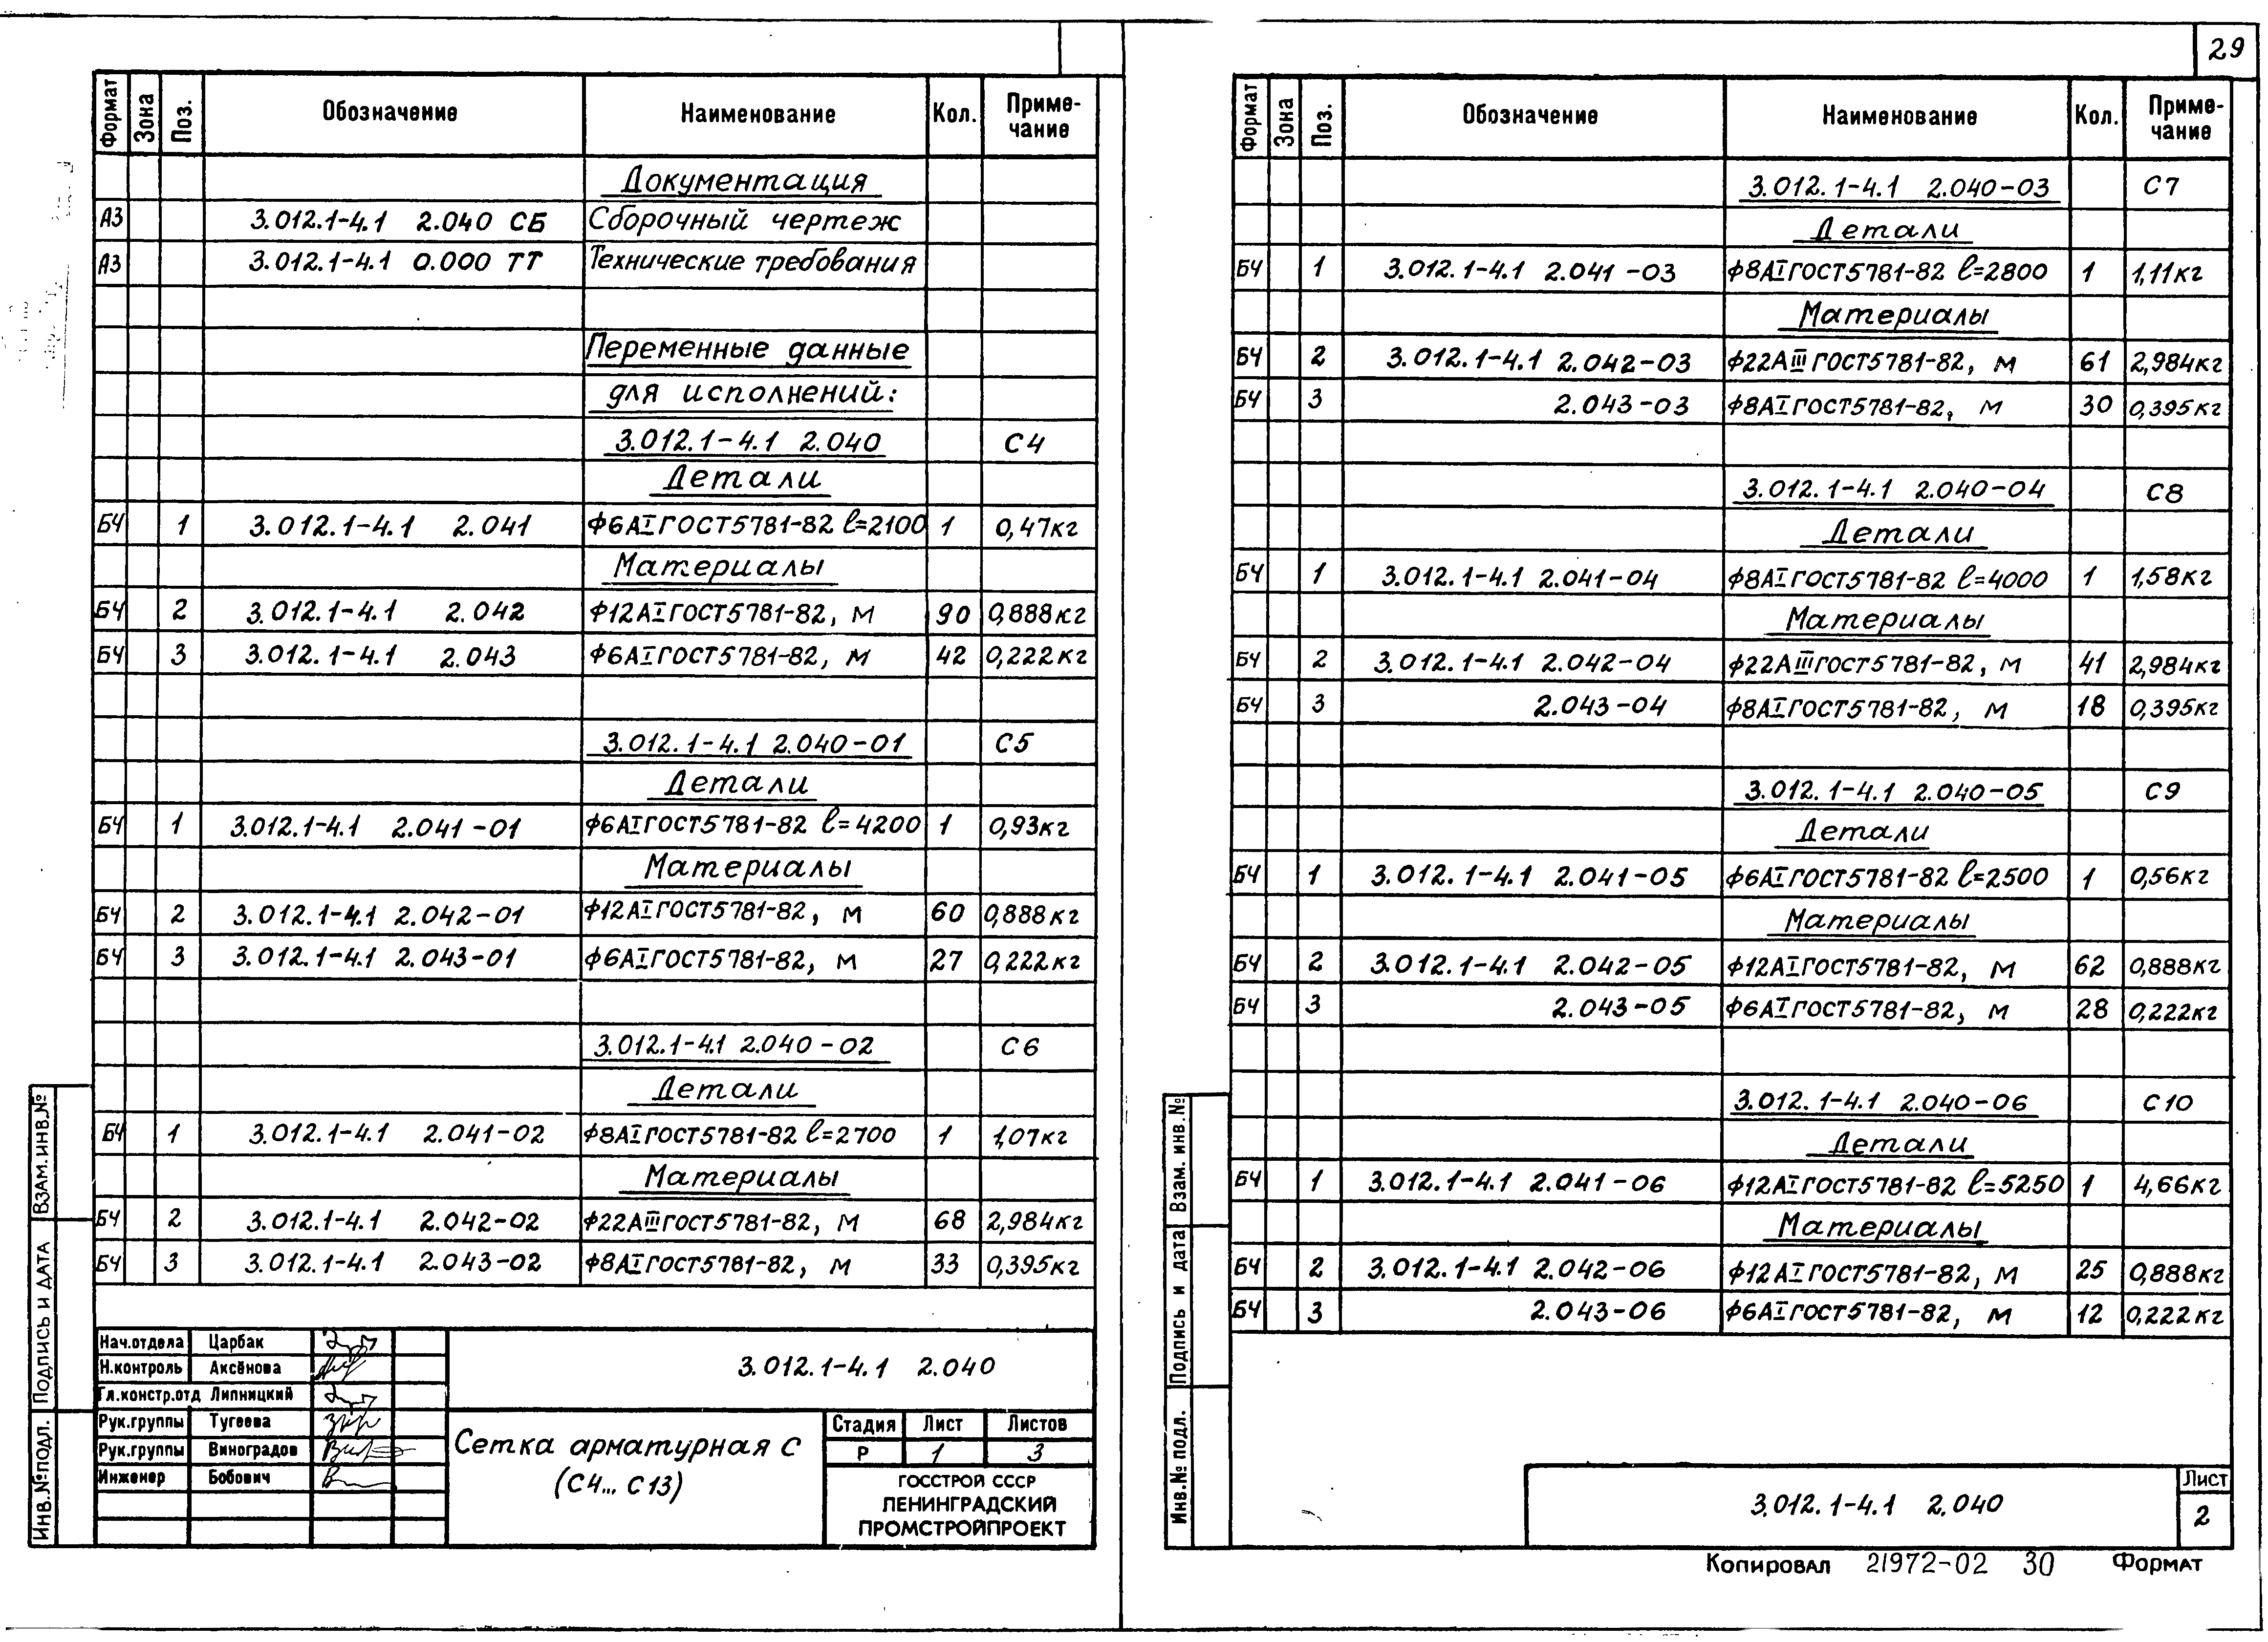 29
Формат Зона Поз. Обозначение Наименование Кол. Приме-
чание
Документация
А3 3.012.1-4.1 2.040 СБ Сборочный чертеж
А3 3.012.1-4.1 0.000 ТТ Технические требования
Переменные данные
для исполнений:
3.012.1-4.1 2.040 С4
Детали
БЧ 1 3.012.1-4.1 2.041 Ф6АI ГОСТ5781-82 l=2100 1 0,47кг
Материалы
БЧ 2 3.012.1-4.1 2.042 Ф12АI ГОСТ5781-82, м 90 0,888кг
БЧ 3 3.012.1-4.1 2.043 Ф6АI ГОСТ5781-82, м 42 0,222кг
3.012.1-4.1 2.040-01 С5
Детали
БЧ 1 3.012.1-4.1 2.041-01 Ф6АI ГОСТ5781-82 l=4200 1 0,93кг
Материалы
БЧ 2 3.012.1-4.1 2.042-01 Ф12АI ГОСТ5781-82, м 60 0,888кг
БЧ 3 3.012.1-4.1 2.043-01 Ф6АI ГОСТ5781-82, м 27 0,222кг
3.012.1-4.1 2.040-02 С6
Детали
БЧ 1 3.012.1-4.1 2.041-02 Ф8АI ГОСТ5781-82 l=2700 1 1,07кг
Материалы
БЧ 2 3.012.1-4.1 2.042-02 Ф22АIII ГОСТ5781-82, м 68 2,984кг
БЧ 3 3.012.1-4.1 2.043-02 Ф8АI ГОСТ5781-82, м 33 0,395кг
Нач.отдела Царбак
Н.контроль Аксёнова
Гл.констр.отд Липницкий
Рук.группы Тугеева
Рук.группы Виноградов
Инженер Бобович
3.012.1-4.1 2.040
Сетка арматурная С
(С4... С13)
Стадия Лист Листов
Р 1 3
ГОССТРОЙ СССР
ЛЕНИНГРАДСКИЙ
ПРОМСТРОЙПРОЕКТ
Инв.№подл. Подпись и дата Взам.инв.№
Формат Зона Поз. Обозначение Наименование Кол. Приме-
чание
3.012.1-4.1 2.040-03 С7
Детали
БЧ 1 3.012.1-4.1 2.041-03 Ф8АI ГОСТ5781-82 l=2800 1 1,11кг
Материалы
БЧ 2 3.012.1-4.1 2.042-03 Ф22АIII ГОСТ5781-82, м 61 2,984кг
БЧ 3 2.043-03 Ф8АI ГОСТ5781-82, м 30 0,395кг
3.012.1-4.1 2.040-04 С8
Детали
БЧ 1 3.012.1-4.1 2.041-04 Ф8АI ГОСТ5781-82 l=4000 1 1,58кг
Материалы
БЧ 2 3.012.1-4.1 2.042-04 Ф22АIII ГОСТ5781-82, м 41 2,984кг
БЧ 3 2.043-04 Ф8АI ГОСТ5781-82, м 18 0,395кг
3.012.1-4.1 2.040-05 С9
Детали
БЧ 1 3.012.1-4.1 2.041-05 Ф6АI ГОСТ5781-82 l=2500 1 0,56кг
Материалы
БЧ 2 3.012.1-4.1 2.042-05 Ф12АI ГОСТ5781-82, м 62 0,888кг
БЧ 3 2.043-05 Ф6АI ГОСТ5781-82, м 28 0,222кг
3.012.1-4.1 2.040-06 С10
Детали
БЧ 1 3.012.1-4.1 2.041-06 Ф12АI ГОСТ5781-82 l=5250 1 4,66кг
Материалы
БЧ 2 3.012.1-4.1 2.042-06 Ф12АI ГОСТ5781-82, м 25 0,888кг
БЧ 3 2.043-06 Ф6АI ГОСТ5781-82, м 12 0,222кг
Инв.№ подл. Подпись и дата Взам. инв.№
3.012.1-4.1 2.040
Лист
2
Копировал 21972-02 30 Формат